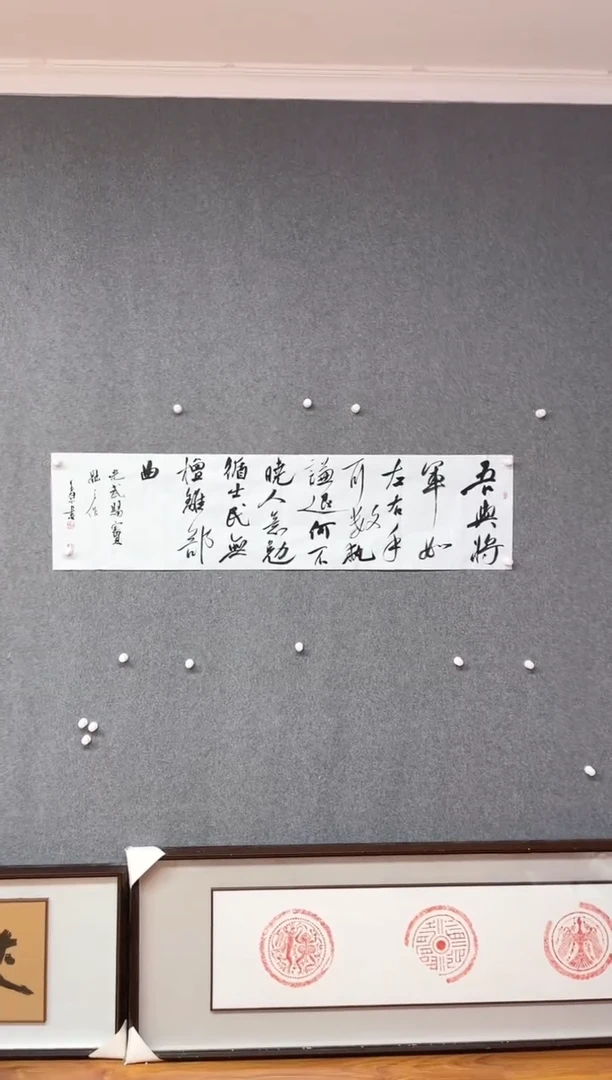 吾與將
軍如
左右手
耳數執
謙退何不
曉人意勉
循士民無
擅離部
曲
光武賜竇
融之信
書